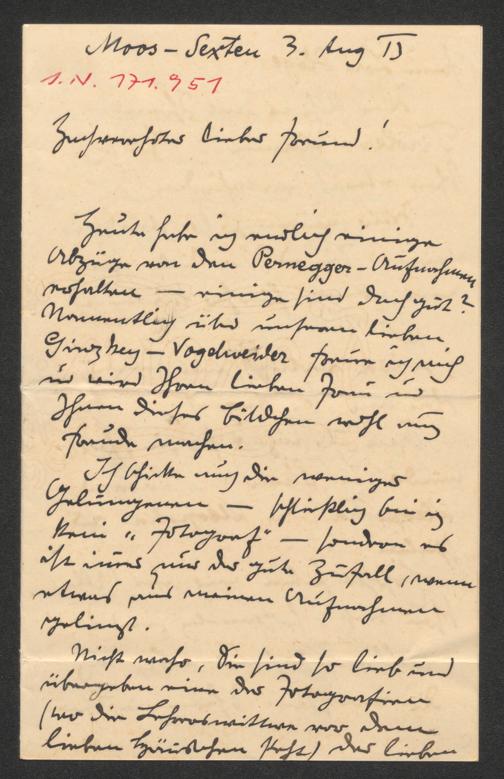 Moos – Sexten 3. Aug 13
I.N. 171.951
Hochverehrter lieber Freund!
Heute habe ich endlich einige
Abzüge von den Pernegger-Aufnahmen
erhalten — einige sind doch gut?
Namentlich über unseren lieben
Ginzkey – Vogelweider freue ich mich
u wird Ihrer lieben Frau u
Ihnen dieses Bildchen wohl auch
Freude machen.
Ich schicke auch die weniger
Gelungenen — schließlich bin ich
kein "Fotograf" — sondern es
ist immer nur der gute Zufall, wenn
etwas aus meinen Aufnahmen
gelingt.
Nicht wahr, Sie sind so lieb und
übergeben eine der Fotografien
(wo die Lehrerswittwe vor dem
lieben Häuschen steht) der lieben